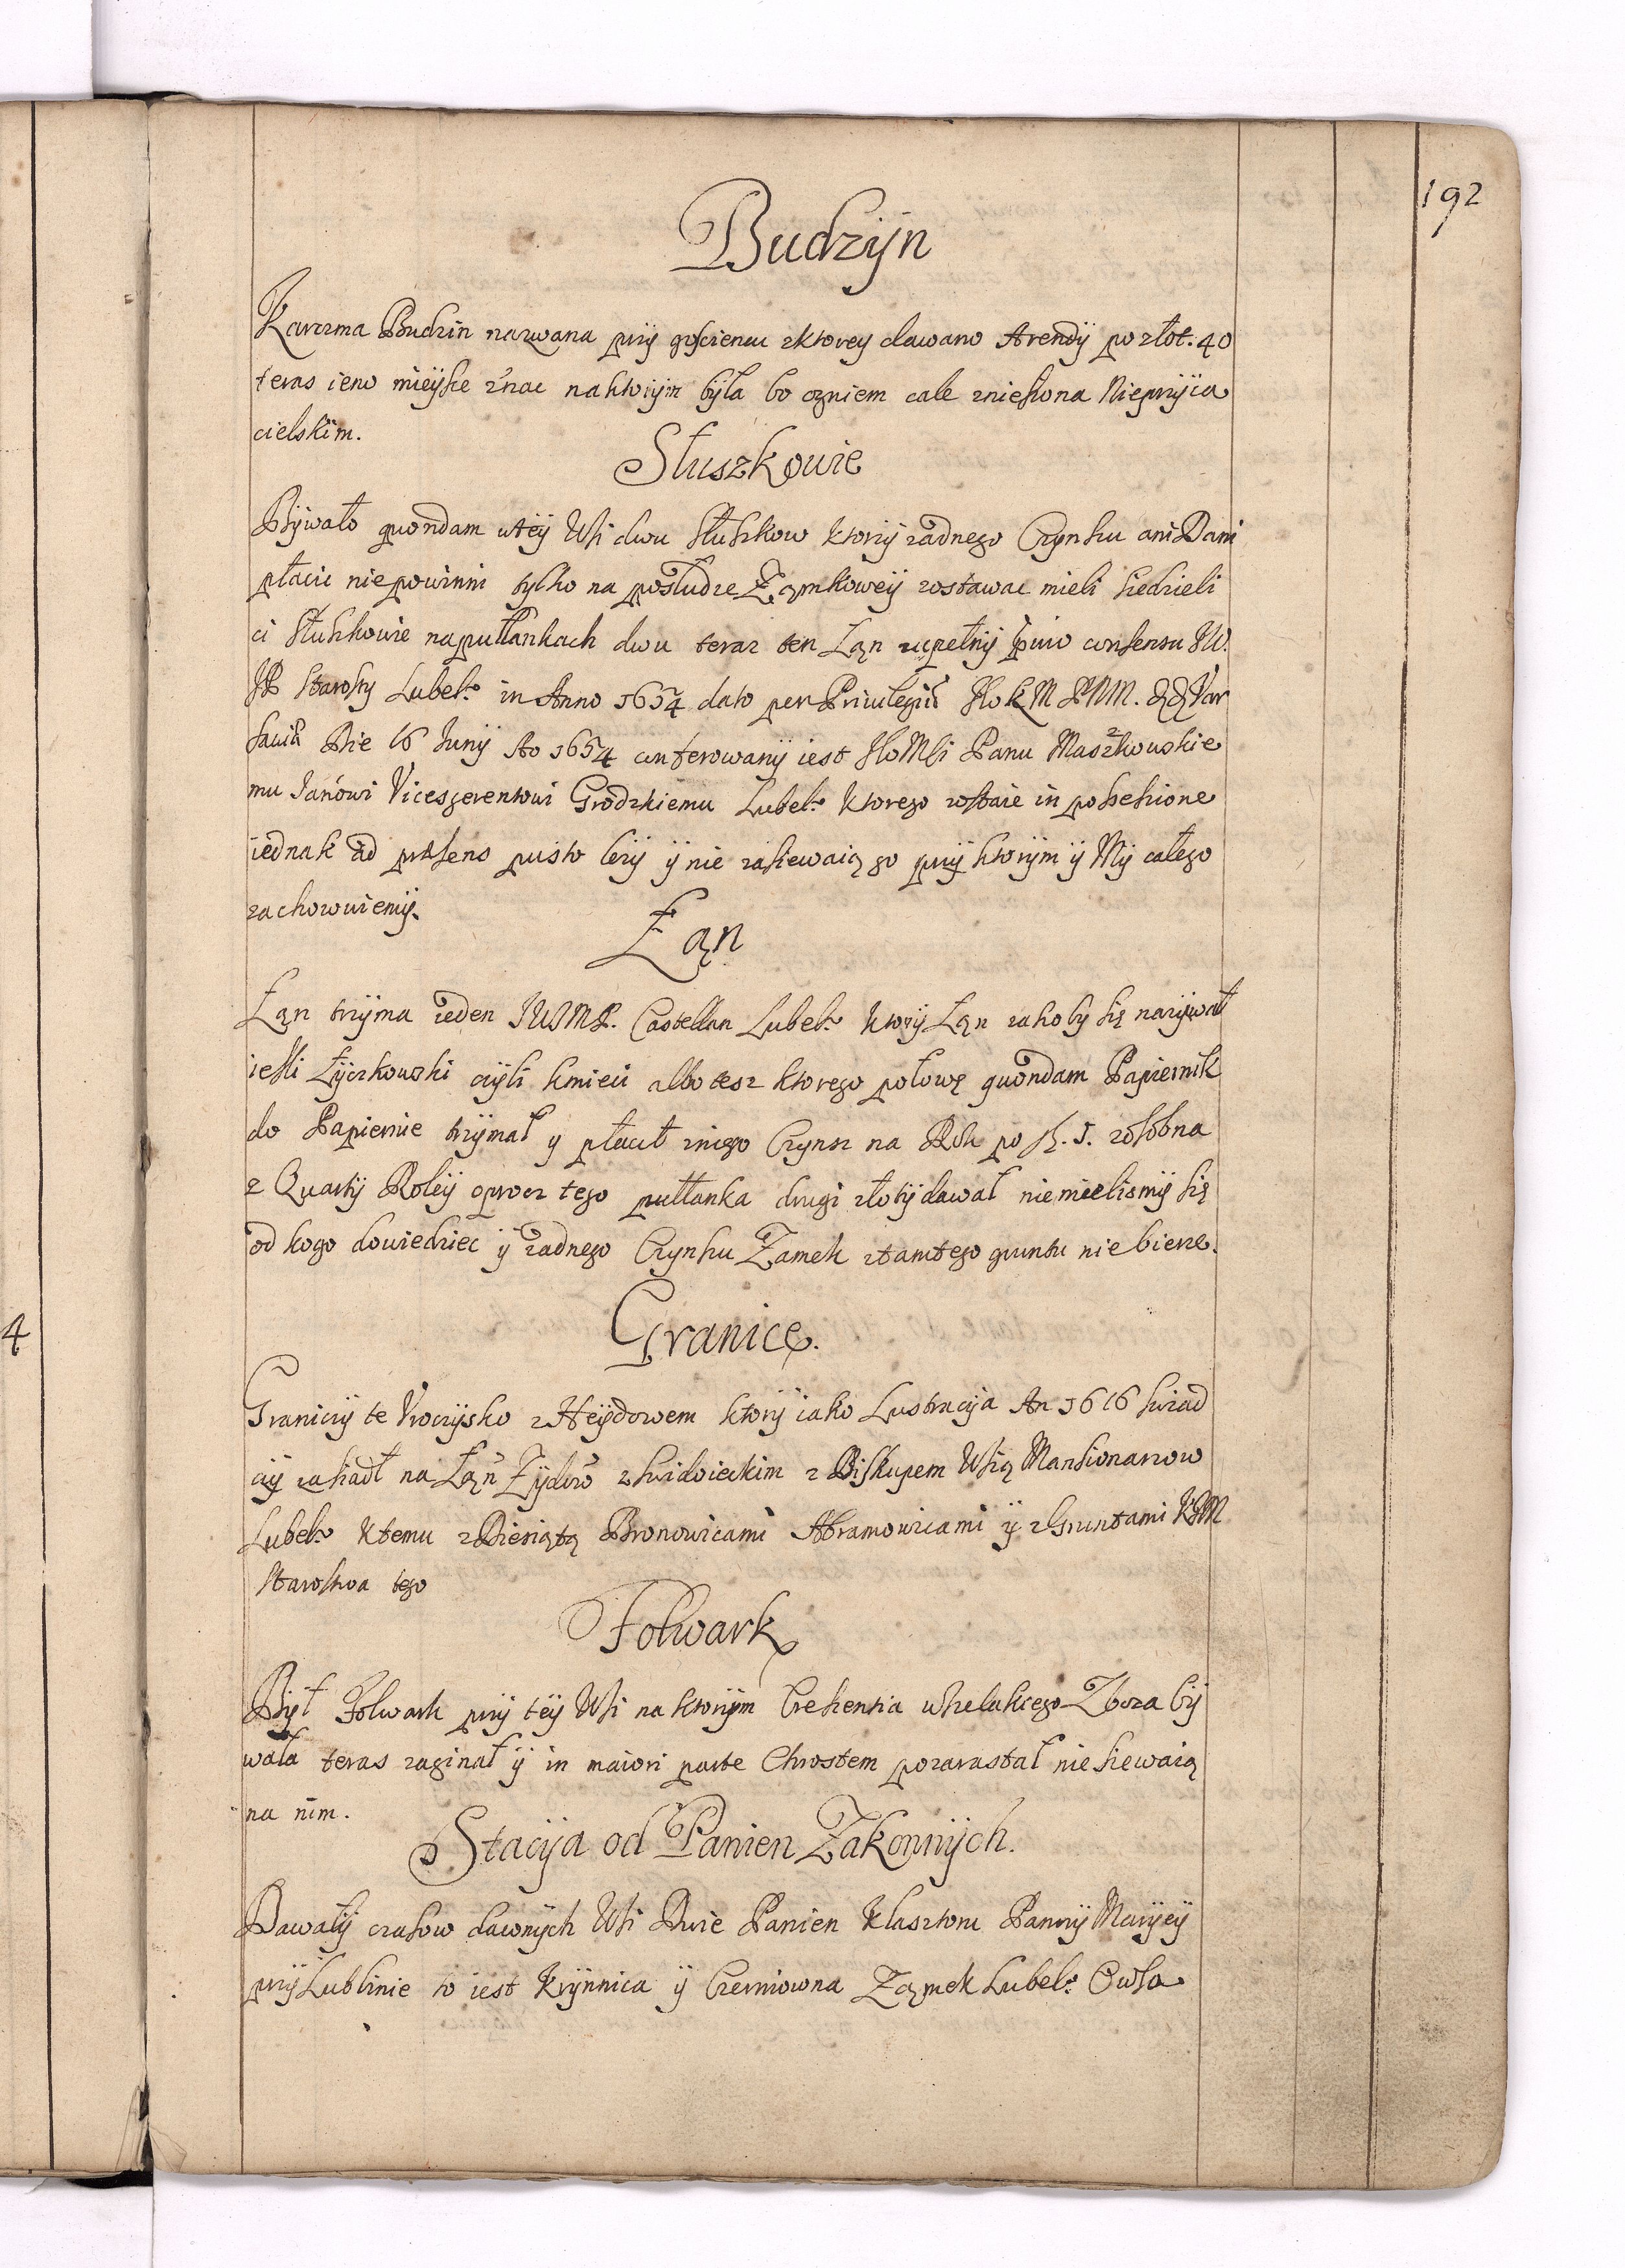 192
Budzÿn
Karczma Budzin nazwana przÿ gosciencu zktorey dawano Arendÿ po złot. 40
teras ieno mieÿsce znac naktorÿm bÿła bo ogniem cale zniesiona Nieprzÿia
cielskim.
Słuszkowie
Bÿwało quondam wteÿ Wsi dwu słuszkow ktorzÿ zadnego Czynszu ani Dani
płacic niepowinni tylko na posłudze Zamkoweÿ zostawac mieli siedzieli
ci słuszkowie napułłankach dwu teraz ten Łan zupełnÿ consensu JW.
JP Starosty Lubelo in Anno 1654 dato per Priuilegiu JKoKM PNM. Var
sauia Die 16 Junÿ Ao 1654 conferowanÿ iest JkoMsci Panu Maszkouskie
mu Janowi Vicesgerentowi Grodzkiemu Lubelo ktorego zostaie in possessione
iednak ad præsens pusto lezÿ ÿ nie zasiewaią go przÿ ktorÿm ÿ Mÿ całego
zachowuiemÿ.
Łan
Łan trzÿma ieden JWJMP. Castellan Lubelo ktorÿ Łan zakoby się nazÿwał
iesli Łÿczkowski czÿli kmieci albo tesz ktorego połowę quondam Papiernik
do Papiernie trzÿmał y płacił zniego Czynsz na Rok po zosobna
z Quartÿ Roleÿ oprocz tego pułłanka drugi złotÿ dawał niemielismÿ się
od kogo dowiedziec ÿ zadnego Czynszu Zamek ztamtego gruntu niebierze.
Granice.
Graniczÿ te Vroczÿsko zHeÿdowem ktorÿ iako Lustracÿa An 1616 swiad
czÿ zasiadł na Łan Zÿdow zswidnickim z Biskupem Wsią Mansionarzow
Lubelo Ktemu zDziesiątą Bronowicami Abramowicami ÿ zGruntami KJM
Starostwa tego
Folwark
Bÿł Folwark przÿ teÿ Wsi na ktorÿm Cressentia wszelakiego Zboza bÿ
wała teras zaginał ÿ in maiori parte Chrostem pozarastał nie siewaią
na nim.
Stacÿa od Panien Zakonnÿch.
Dawałÿ czasow dawnÿch Wsi Dwie Panien Klasztoru Pannÿ Marÿeÿ
przÿ Lublinie to iest Krÿnnica ÿ Czerniowna Zamek Lubelo Owsa
4